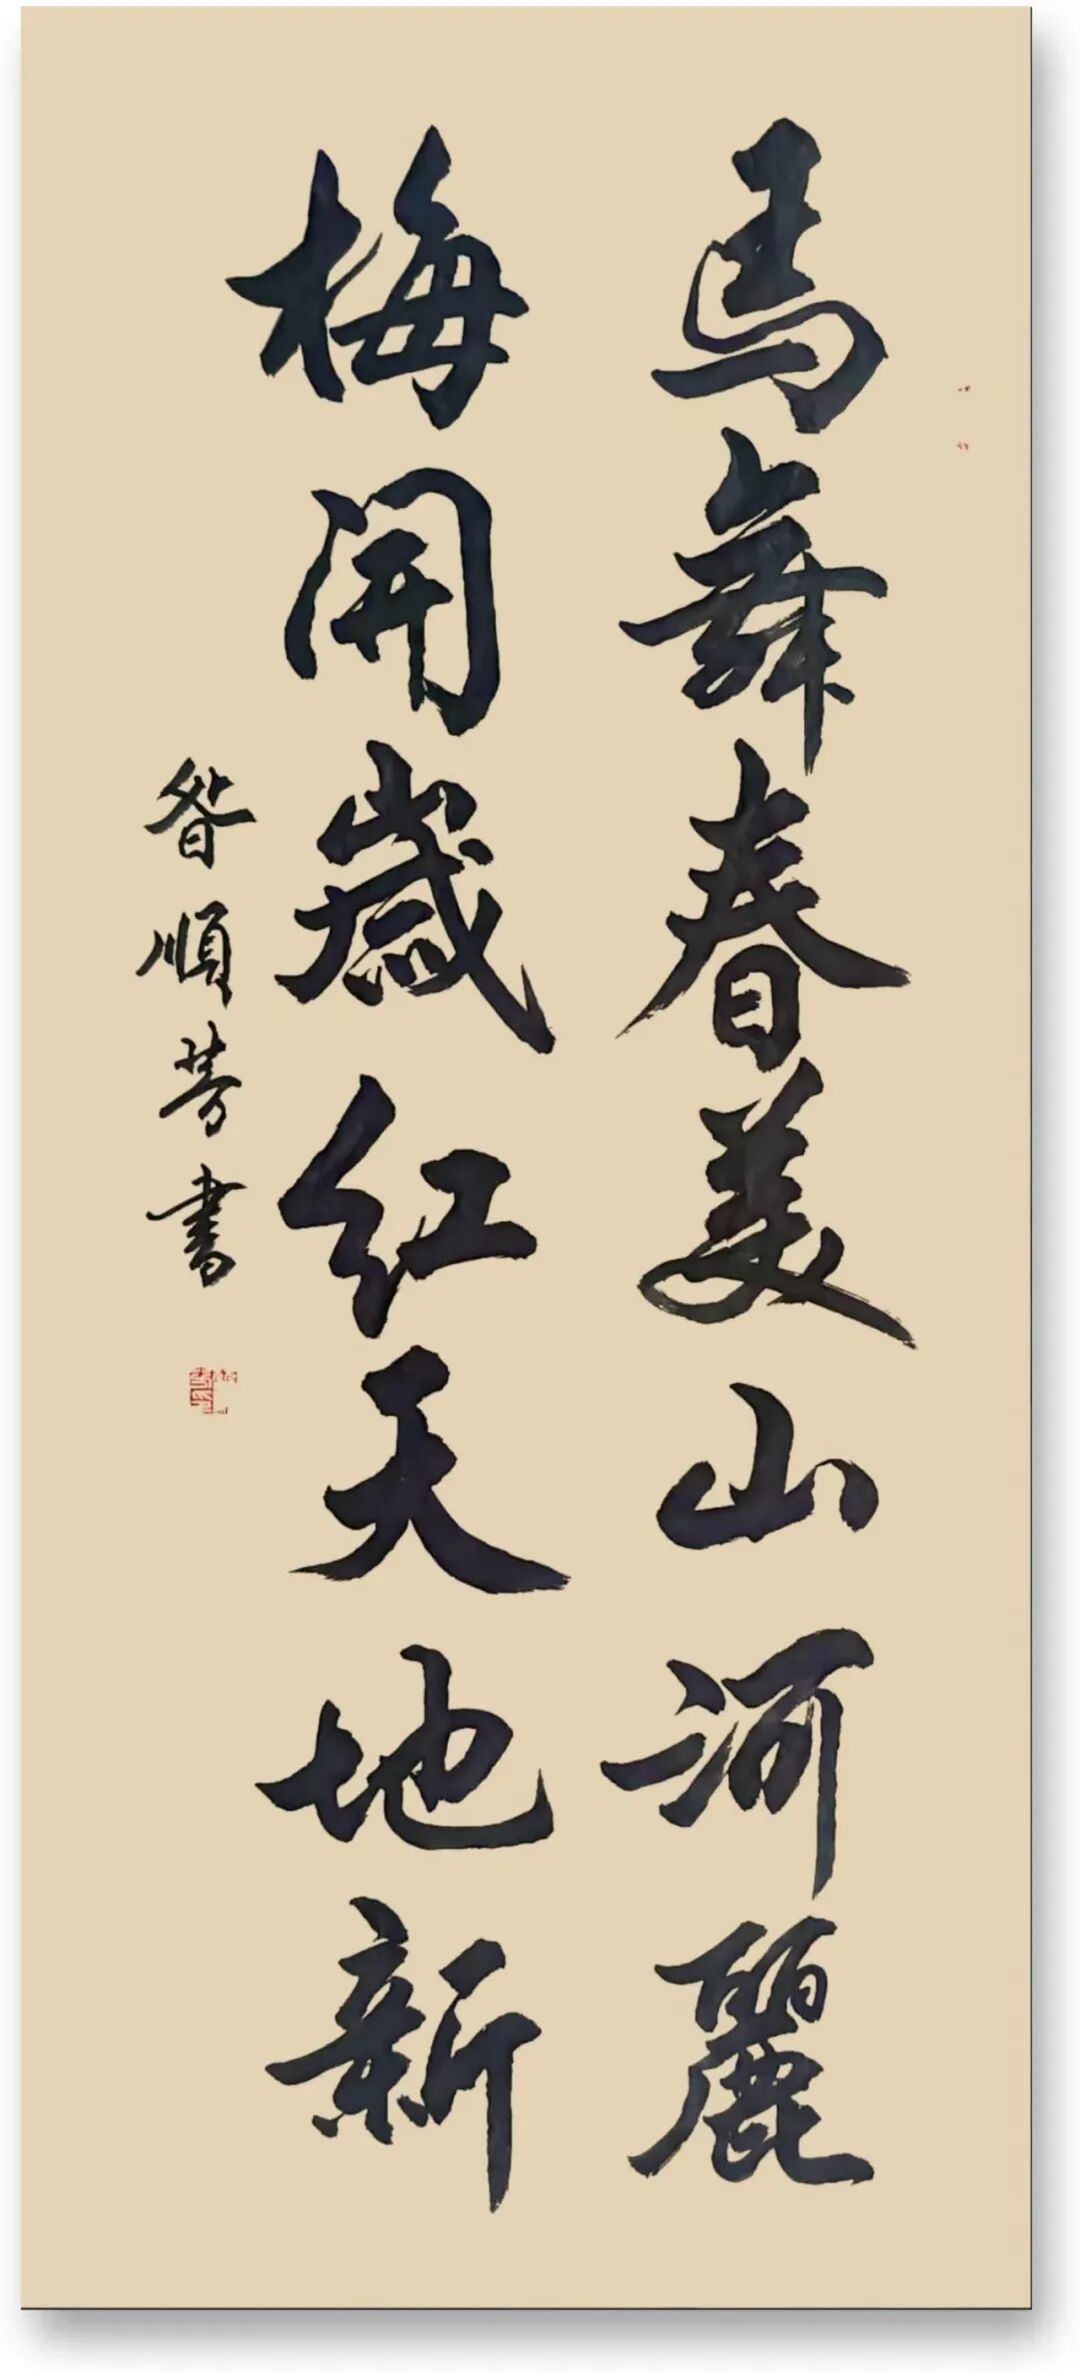 马舞春美山河麗
梅開歲红天地新
昝順芳書